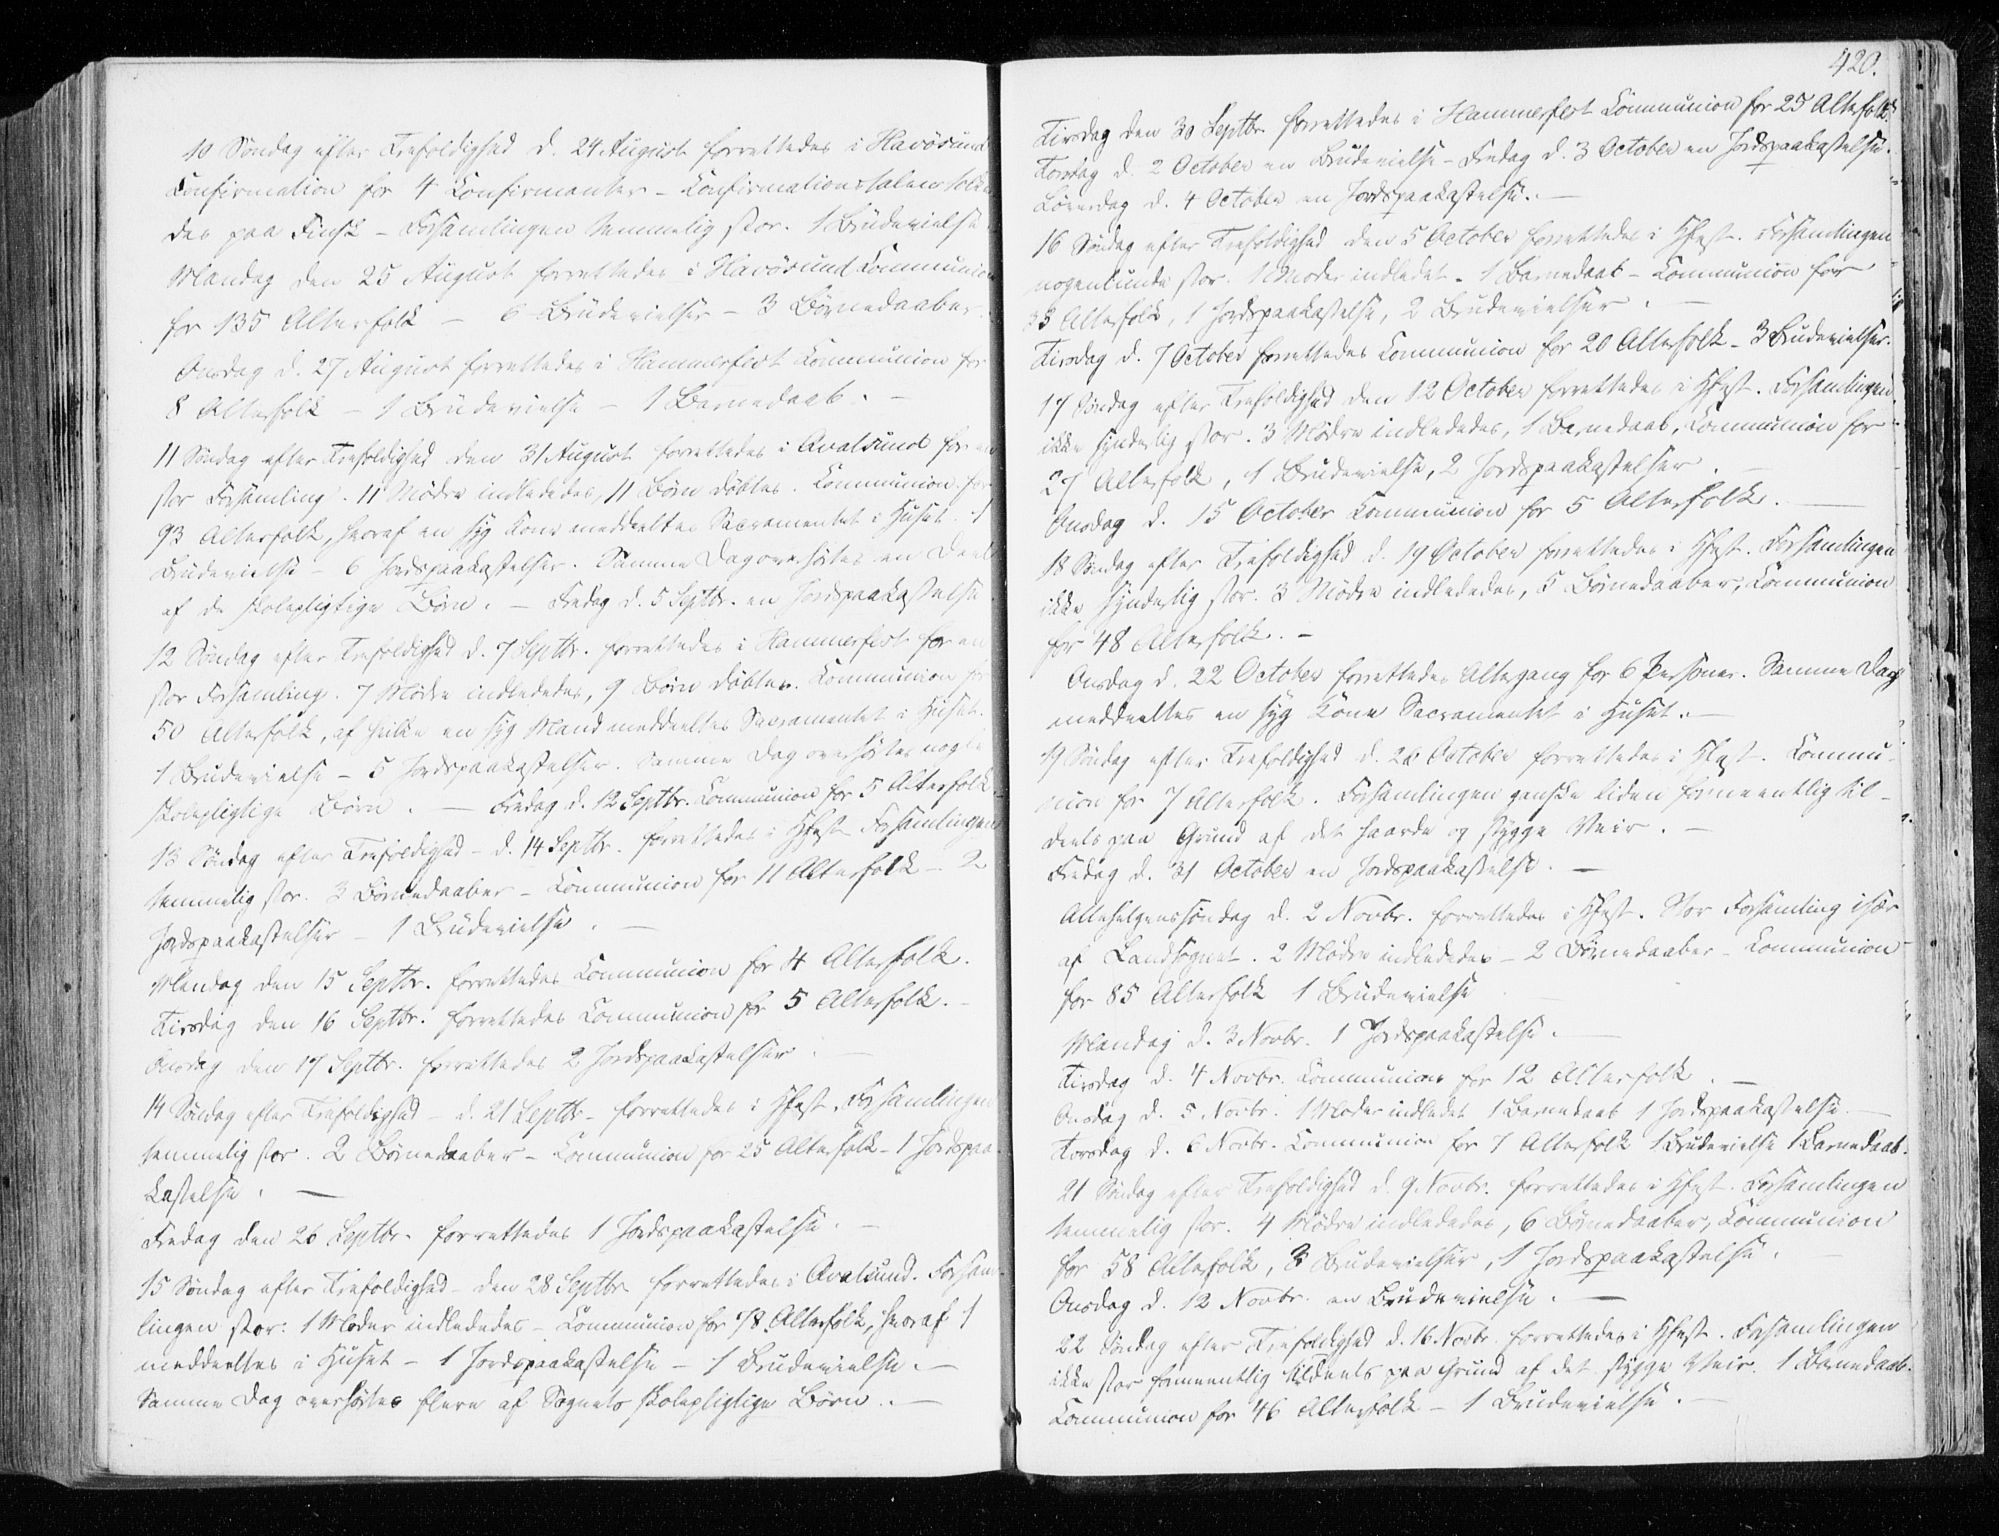 10 Søndag efter Trefoldighed d. 24 August forrettedes i Havösund
Confirmation for 4 Confirmanter - Confirmationstalen tolke-
des paa Finsk - Forsamlingen temmelig stor. 1 Brudevielse.
Mandag den 25 August forrettedes i Havösund Communion
for 135 Alterfolk - 6 Brudevielser - 3 Børnedaaber.
Onsdag d. 27 August forrettedes i Hammerfest Communion for
8 Alterfolk - 1 Brudevielse - 1 Barnedaab. -
11 Søndag efter Trefoldighed den 31 August forrettedes i Qvalsund for en
stor Forsamling. 11 Mødre indlededes, 11 Børn døbtes. Communion for
93 Alterfolk, hvoraf en syg Kone meddeeltes Sacramentet i Huset. 1
Brudevielse - 6 Jordspaakastelser. Samme Dag overhørtes en Deel
af de skolepligtige Børn. - Fredag d. 5 Septbr. en Jordspaakastelse.
12 Søndag efter Trefoldighed d. 7 Septbr. forrettedes i Hammerfest for en
stor Forsamling. 7 Mødre indlededes, 9 Børn døbtes. Communion for
50 Alterfolk, af hvilke en syg Mand meddeeltes Sacramentet i Huset.
1 Brudevielse - 5 Jordspaakastelser. Samme Dag overhørtes nogle
skolepligtige Børn. - Fredag d. 12 Septbr. Communion for 5 Alterfolk.
13 Søndag efter Trefoldighed - d. 14 Septbr. forrettedes i Hfest Forsamlingen
temmelig stor. 3 Børnedaaber - Communion for 11 Alterfolk - 2
Jordspaakastelser - 1 Brudevielse. -
Mandag den 15 Septbr. forrettedes Communion for 4 Alterfolk.
Tirsdag den 16 Septbr. forrettedes Communion for 5 Alterfolk. -
Onsdag den 17 Septbr. forrettedes 2 Jordspaakastelser. -
14 Søndag efter Trefoldighed - d. 21 Septbr - forrettedes i Hfest. Forsamlingen
temmelig stor. 2 Børnedaaber - Communion for 25 Alterfolk - 1 Jordspaa-
kastelse. -
Fredag den 26 Septbr. forrettedes 1 Jordspaakastelse. -
15 Søndag efter Trefoldighed - den 28 Septbr forrettedes i Qvalsund. Forsam-
lingen stor. 1 Moder indlededes - Communion for 78 Alterfolk, hvoraf 1
meddeeltes i Huset - 1 Jordspaakastelse - 1 Brudevielse. -
Samme Dag overhørtes flere af Sognets skolepligtige Børn. -
420.
Tirsdag den 30 Septbr forrettedes i Hammerfest Communion for 25 Alterfolk
Torsdag d. 2 October en Brudevielse - Fredag d. 3 October en Jordspaakastelse.
Løverdag d. 4 October en Jordspaakastelse. -
16 Søndag efter Trefoldighed den 5 October forrettedes i Hfest. Forsamlingen
nogenlunde stor. 1 Moder indledet - 1 Barnedaab - Communion for
33 Alterfolk, 1 Jordspaakastelse, 2 Brudevielser. -
Tirsdag d. 7 October forrettedes Communion for 20 Alterfolk - 3 Brudevielser.
17 Søndag efter Trefoldighed den 12 October forrettedes i Hfest. Forsamlingen
ikke synderlig stor. 3 Mødre indlededes, 1 Barnedaab, Communion for
27 Alterfolk, 1 Brudevielse, 2 Jordspaakastelser. -
Onsdag d. 15 October Communion for 5 Alterfolk. -
18 Søndag efter Trefoldighed d. 19 October forrettedes i Hfest. Forsamlingen
ikke synderlig stor. 3 Mødre indlededes, 5 Børnedaaber, Communion
for 48 Alterfolk. -
Onsdag d. 22 October forrettedes Altergang for 6 Personer. Samme Dag
meddeeltes en syg Kone Sacramentet i Huset. -
19 Søndag efter Trefoldighed d. 26 October forrettedes i Hfest. Commu-
nion for 7 Alterfolk. Forsamlingen ganske liden formeentlig til-
deels paa Grund af det haarde og stygge Veir. -
Fredag d. 31 October en Jordspaakastelse. -
Allehelgenssøndag d. 2 Novbr. forrettedes i Hfest. Stor Forsamling især
af Landsognet. 2 Mødre indlededes - 2 Børnedaaber - Communion
for 85 Alterfolk 1 Brudevielse
Mandag d. 3 Novbr. 1 Jordspaakastelse. -
Tirsdag d. 4 Novbr. Communion for 12 Alterfolk. -
Onsdag d. 5 Novbr. 1 Moder indledet 1 Barnedaab 1 Jordspaakastelse. -
Torsdag d. 6 Novbr. Communion for 7 Alterfolk 1 Brudevielse 1 Barnedaab.
21 Søndag efter Trefoldighed d. 9 Novbr. forrettedes i Hfest. Forsamlingen
temmelig stor. 4 Mødre indlededes, 6 Børnedaaber, Communion
for 58 Alterfolk, 3 Brudevielser, 1 Jordspaakastelse. -
Onsdag d. 12 Novbr. en Brudevielse. -
22 Søndag efter Trefoldighed d. 16 Novbr. forrettedes i Hfest. Forsamlingen
ikke stor formeentlig tildeels paa Grund af det stygge Veir. 1 Barnedaab.
Communion for 46 Alterfolk - 1 Brudevielse. -